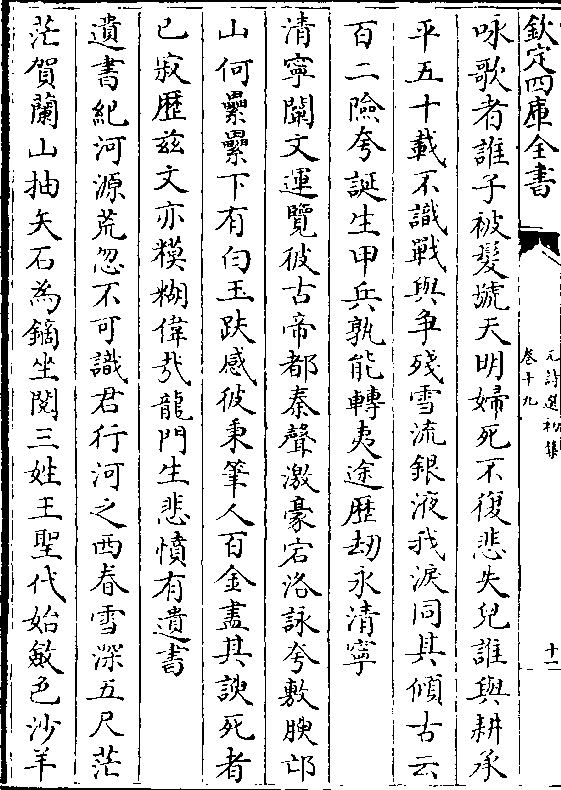 欽定四庫全書
元詩選初集
卷十九
十一
咏歌者誰子被髮號天明婦死不復悲失兒誰與耕承
平五十載不識戰與争殘雪流銀液我淚同其傾古云
百二險夸誕生甲兵孰能轉夷途歴刼永清寧
清寧闡文運覽彼古帝都秦聲激豪宕洛詠夸敷腴邙
山何纍纍下有白玉趺感彼秉筆人百金盡其諛死者
已寂歴兹文亦糢糊偉哉龍門生悲憤有遺書
遺書紀河源荒忽不可識君行河之西春雪深五尺茫
茫賀蘭山抽矢石為鏑坐閱三姓王聖代始斂色沙羊